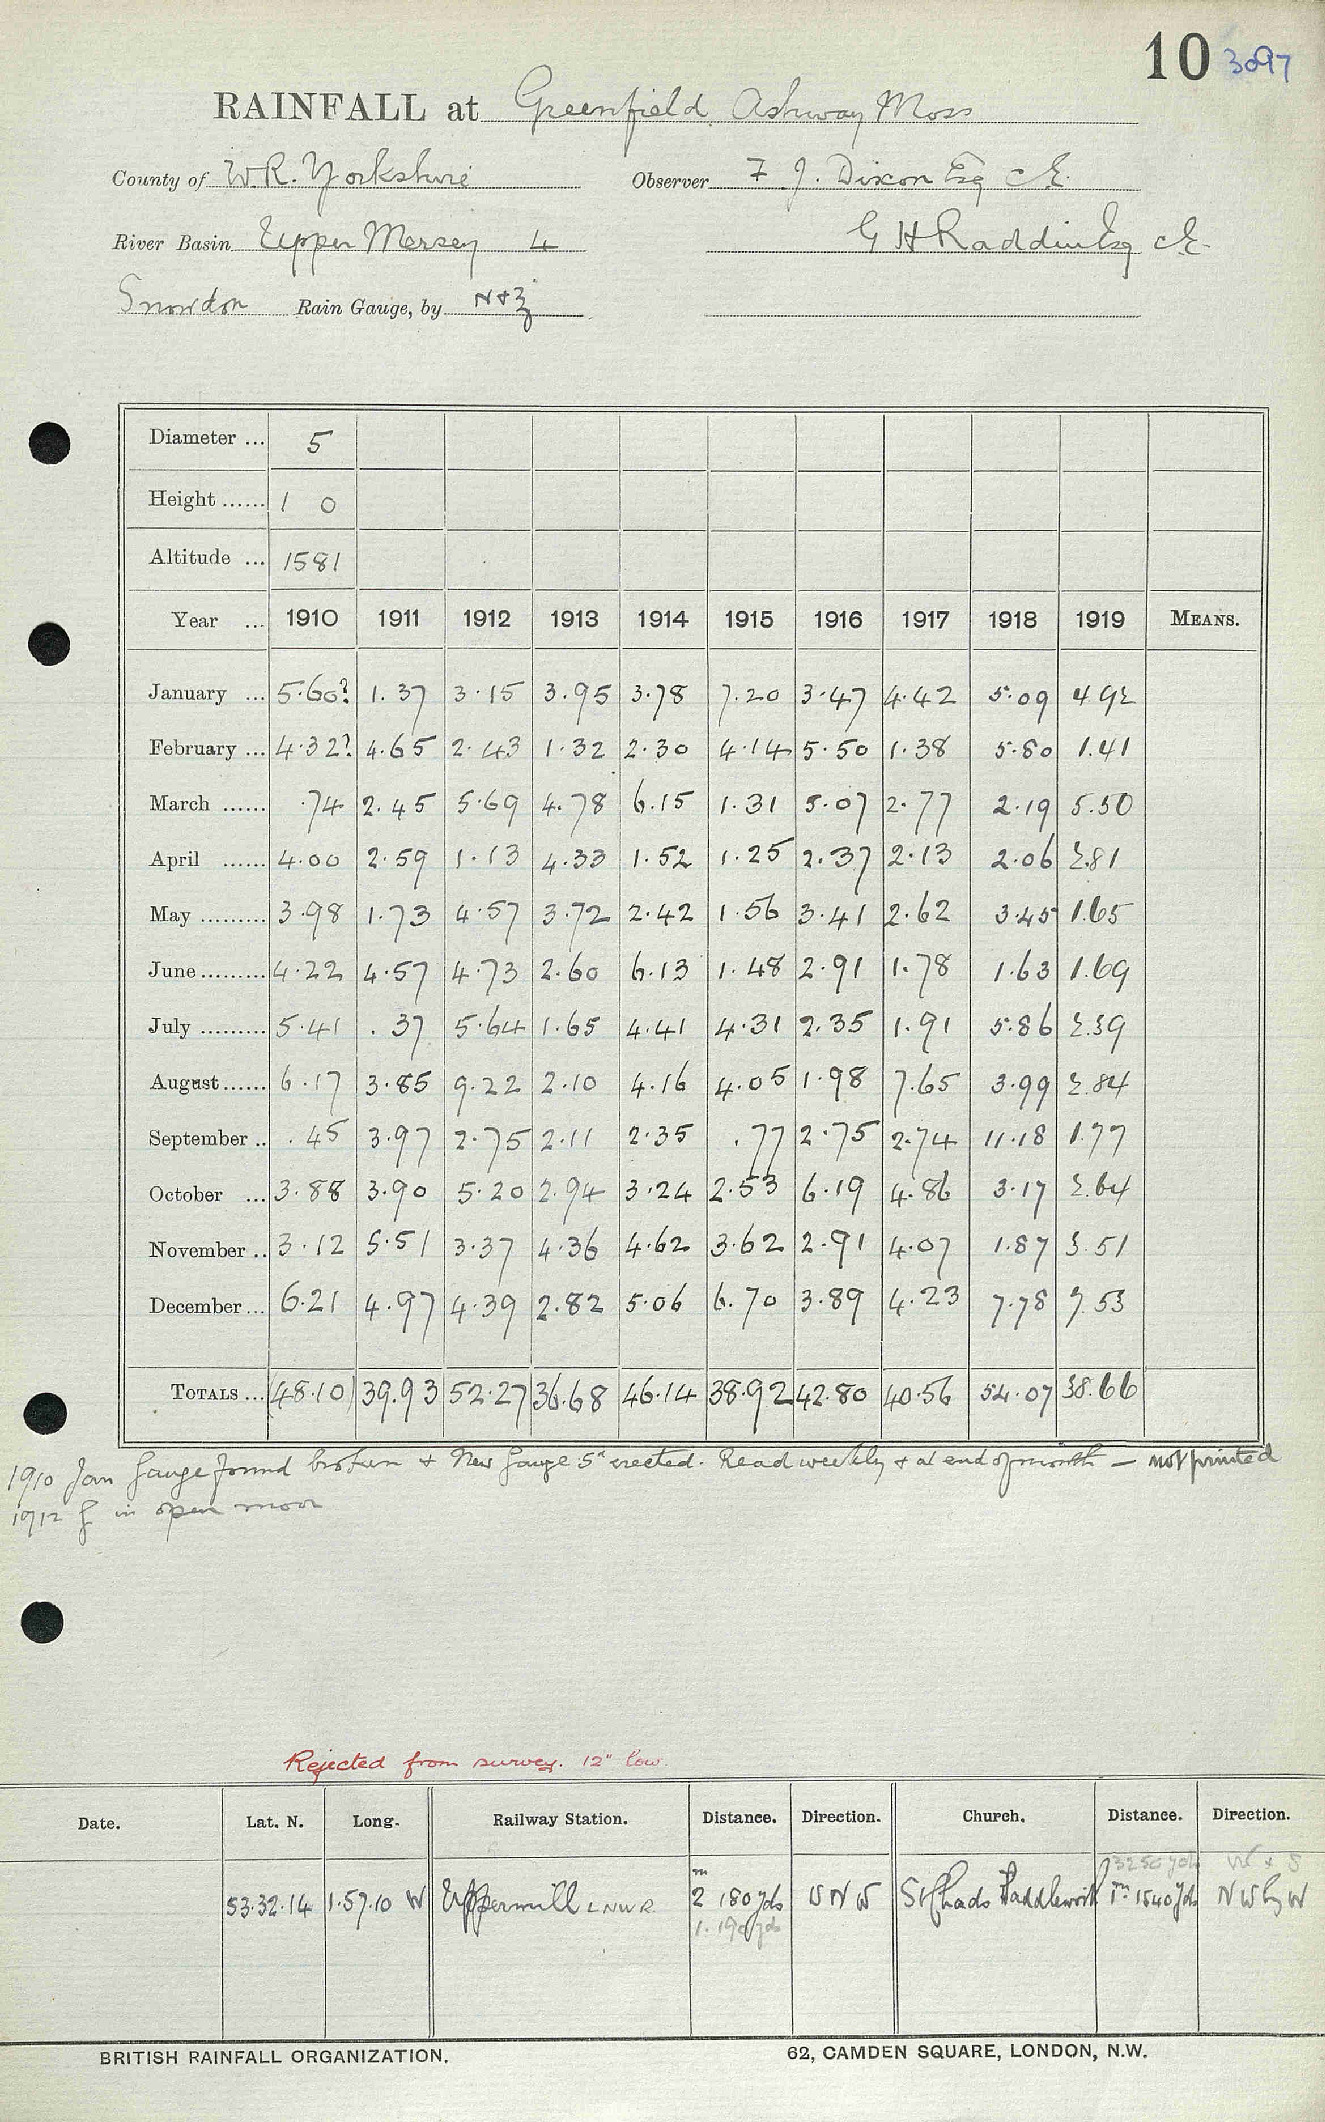 10 3097
RAINFALL at Greenfield Ashway Moss
County of W.R. Yorkshire Observer F J. Dixon Esq CE.
River Basin Upper Mersey 4 G H Raddin Esq CE
Snowdon Rain Gauge, by N+Z
Diameter ... 5
Height ...... 1 0
Altitude ... 1581
Year ... 1910 1911 1912 1913 1914 1915 1916 1917 1918 1919 MEANS.
January ... 5.60? 1.37 3.15 3.95 3.78 7.20 3.47 4.42 5.09 4.92
February ... 4.32? 4.65 2.43 1.32 2.30 4.14 5.50 1.38 5.80 1.41
March ...... .74 2.45 5.69 4.78 6.15 1.31 5.07 2.77 2.19 5.50
April ...... 4.00 2.59 1.13 4.33 1.52 1.25 2.37 2.13 2.06 2.81
May ......... 3.98 1.73 4.57 3.72 2.42 1.56 3.41 2.62 3.45 1.65
June ......... 4.22 4.57 4.73 2.60 6.13 1.48 2.91 1.78 1.63 1.69
July ......... 5.41 .37 5.64 1.65 4.41 4.31 2.35 1.91 5.86 2.39
August ...... 6.17 3.85 9.22 2.10 4.16 4.05 1.98 7.65 3.99 2.84
September .. .45 3.97 2.75 2.11 2.35 .77 2.75 2.74 11.18 1.77
October ... 3.88 3.90 5.20 2.94 3.24 2.53 6.19 4.86 3.17 2.64
November .. 3.12 5.51 3.37 4.36 4.62 3.62 2.91 4.07 1.87 3.51
December ... 6.21 4.97 4.39 2.82 5.06 6.70 3.89 4.23 7.78 7.53
TOTALS ... (48.10) 39.93 52.27 36.68 46.14 38.92 42.80 40.56 54.07 38.66
1910 Jan Gauge found broken & New Gauge 5" erected. Read weekly & at end of month — not printed
1912 G in open moor
Rejected from survey. 12" low.
Date. Lat. N. Long. Railway Station. Distance. Direction. Church. Distance. Direction.
3250 yds W + S
53.32.14 1.57.10 W Uppermill LNWR 2m 180 yds NNW St Chads Saddleworth 1m 1540 yds NW by W
BRITISH RAINFALL ORGANIZATION. 62, CAMDEN SQUARE, LONDON, N.W.